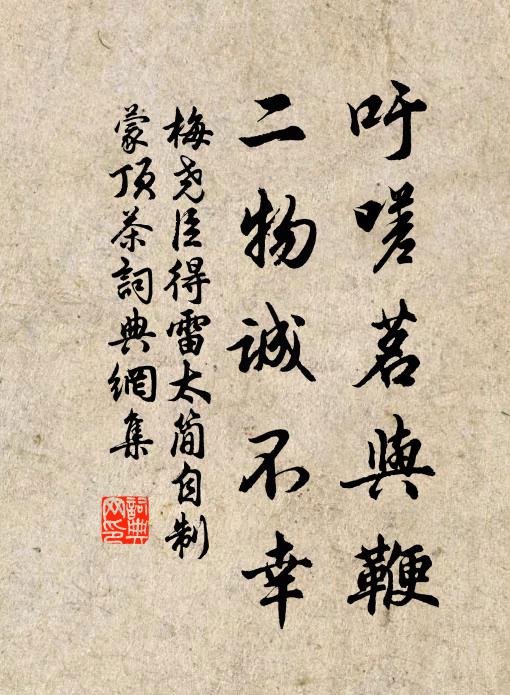 吁嗟茗與鞭
二物誠不幸
梅尧臣得雷太简自制
蒙顶茶詞典網集
詞典
网印